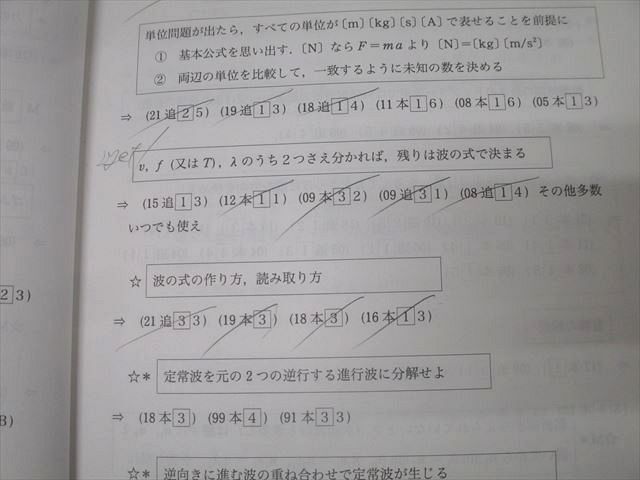 単位問題が出たら，すべての単位が〔m〕〔kg〕〔s〕〔A〕で表せることを前提に
① 基本公式を思い出す．〔N〕なら F＝ma より 〔N〕＝〔kg〕〔m/s²〕
② 両辺の単位を比較して，一致するように未知の数を決める
⇒ (21 追 2 5) (19 追 1 3) (18 追 1 4) (11 本 1 6) (08 本 1 6) (05 本 1 3)
v, f (又は T), λ のうち 2 つさえ分かれば，残りは波の式で決まる
⇒ (15 追 1 3) (12 本 1 1) (09 本 3 2) (09 追 3 1) (08 追 1 4) その他多数
いつでも使え
☆ 波の式の作り方，読み取り方
⇒ (21 追 3 3) (19 本 3) (18 本 3) (16 本 1 3)
☆* 定常波を元の 2 つの逆行する進行波に分解せよ
⇒ (18 本 3) (99 本 4) (91 本 3 3)
☆* 逆向きに進む波の重ね合わせで定常波が生じる
2 3)